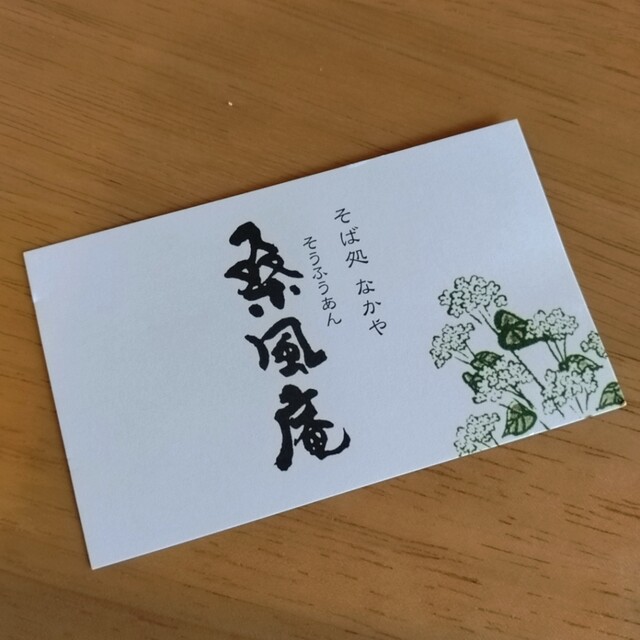 そば処 なかや
そうふうあん
桑風庵